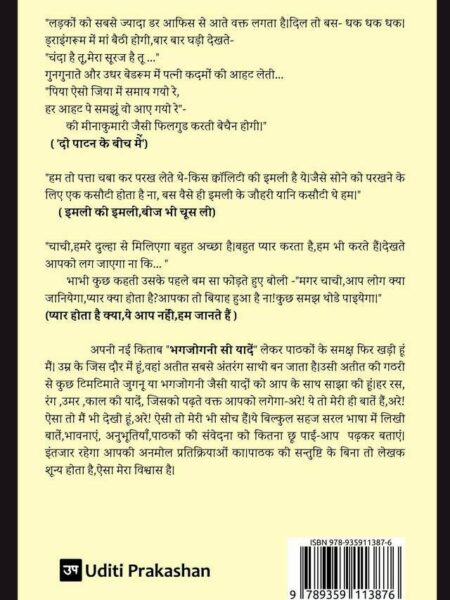 "लड़कों को सबसे ज्यादा डर आफिस से आते वक्त लगता है।दिल तो बस- धक धक धक।
ड्राइंगरूम में मां बैठी होगी,बार बार घड़ी देखते-
"चंदा है तू,मेरा सूरज है तू ..."
गुनगुनाते और उधर बेडरूम में पत्नी कदमों की आहट लेती...
"पिया ऐसो जिया में समाय गयो रे,
हर आहट पे समझूं वो आए गयो रे"-
की मीनाकुमारी जैसी फिलगुड करती बेचैन होगी।"
( 'दो पाटन के बीच में')
"हम तो पत्ता चबा कर परख लेते थे-किस क्वॉलिटी की इमली है ये।जैसे सोने को परखने के
लिए एक कसौटी होता है ना, बस वैसे ही इमली के जौहरी यानि कसौटी थे हम।"
( इमली की इमली,बीज भी चूस ली)
"चाची,हमरे दुल्हा से मिलिएगा बहुत अच्छा है।बहुत प्यार करता है,हम भी करते हैं।देखते
आपको लग जाएगा ना कि... "
भाभी कुछ कहती उसके पहले बम सा फोड़ते हुए बोली -"मगर चाची,आप लोग क्या
जानियेगा,प्यार क्या होता है?आपका तो बियाह हुआ है ना!कुछ समझ थोडे पाइयेगा।"
(प्यार होता है क्या,ये आप नहीं,हम जानते हैं )
अपनी नई किताब "भगजोगनी सी यादें" लेकर पाठकों के समक्ष फिर खड़ी हूं
मैं। उम्र के जिस दौर में हूं,वहां अतीत सबसे अंतरंग साथी बन जाता है।उसी अतीत की गठरी
से कुछ टिमटिमाते जुगनू या भगजोगनी जैसी यादों को आप के साथ साझा की हूं।हर रस,
रंग ,उमर ,काल की यादें, जिसको पढ़ते वक्त आपको लगेगा-अरे! ये तो मेरी ही बातें हैं,अरे!
ऐसा तो मैं भी देखी हूं,अरे! ऐसी तो मेरी भी सोच हैं।ये बिल्कुल सहज सरल भाषा में लिखी
बातें,भावनाएं, अनुभूतियाँ,पाठकों की संवेदना को कितना छू पाई-आप पढ़कर बताएं।
इंतजार रहेगा आपकी अनमोल प्रतिक्रियाओं का।पाठक की सन्तुष्टि के बिना तो लेखक
शून्य होता है,ऐसा मेरा विश्वास है।
ISBN 978-935911387-6
उप Uditi Prakashan
9 789359 113876